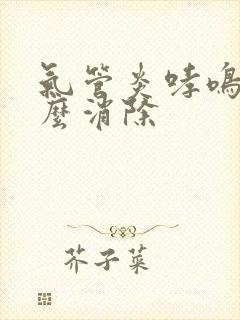 氣管炎哮鳴
麼消除
芥子菜